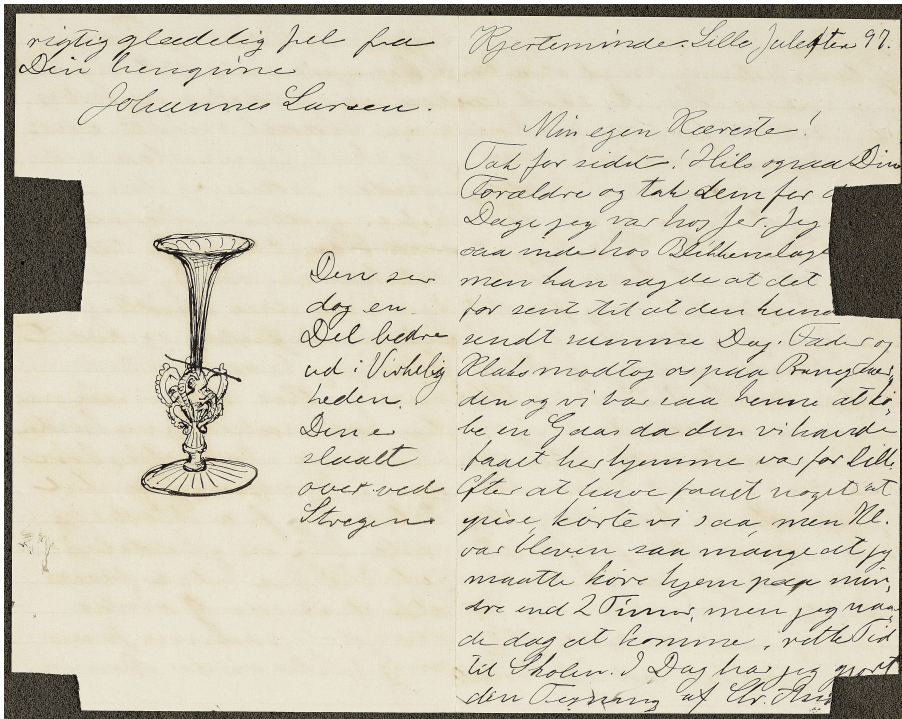 rigtig glædelig Jul fra
Din hengivne
Johannes Larsen.
Den ser
dog en
Del bedre
ud i Virkelig
heden.
Den er
slaaet
over ved
Stregen
Kjerteminde. Lille Juleaften 97.
Min egen Kæreste!
Tak for sidst! Hils ogsaa Dine
Forældre og tak dem for
Dage jeg var hos Jer. Jeg
saa inde hos Blikkenslage
men han sagde at det
for sent til at den kunde
sendt samme Dag. Fader og
Klaks modtog os paa Banegaar,
den og vi var saa henne at kø,
be en Gaas da den vi havde
faaet herhjemme var for lille.
Efter at have faaet noget at
spise, kørte vi saa, men Kl.
var bleven saa mange at jeg
maatte køre hjem paa min,
dre end 2 Timer, men jeg naa,
de dog at komme i rette Tid
til Skolen. I Dag har jeg gjort
den Tegning af Chr.